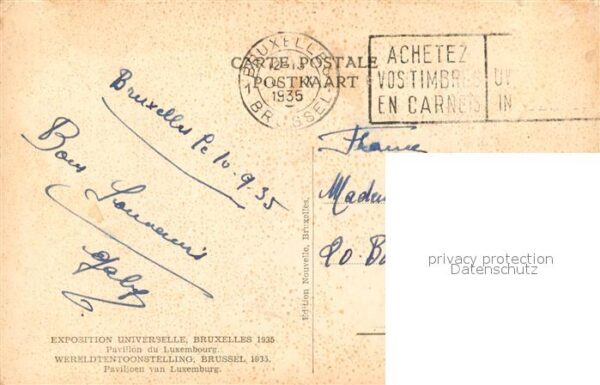 CARTE POSTALE
POSTKAART
BRUXELLES
1935
BRUSSEL
ACHETEZ
VOS TIMBRES
EN CARNETS
Bruxelles le 10.9.35
Bons Souvenirs
France
20
Edition Nouvelle, Bruxelles.
EXPOSITION UNIVERSELLE, BRUXELLES 1935
Pavillon du Luxembourg.
WERELDTENTOONSTELLING, BRUSSEL 1935.
Paviljoen van Luxemburg.
privacy protection
Datenschutz